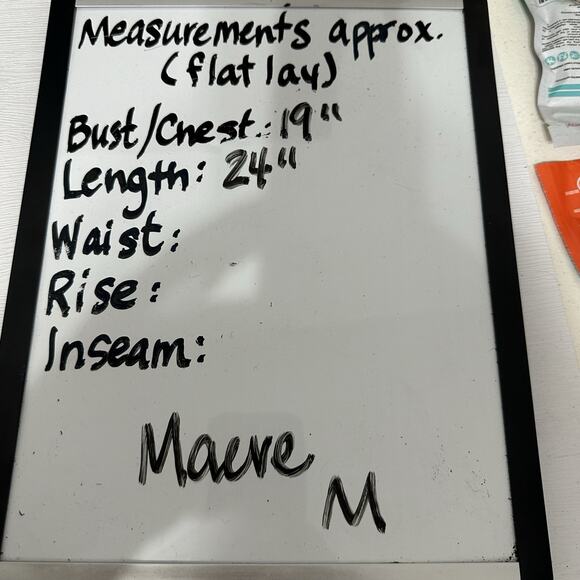 Measurements approx.
(flat lay)
Bust/Chest: 19"
Length: 24"
Waist:
Rise:
Inseam:
Maeve
M